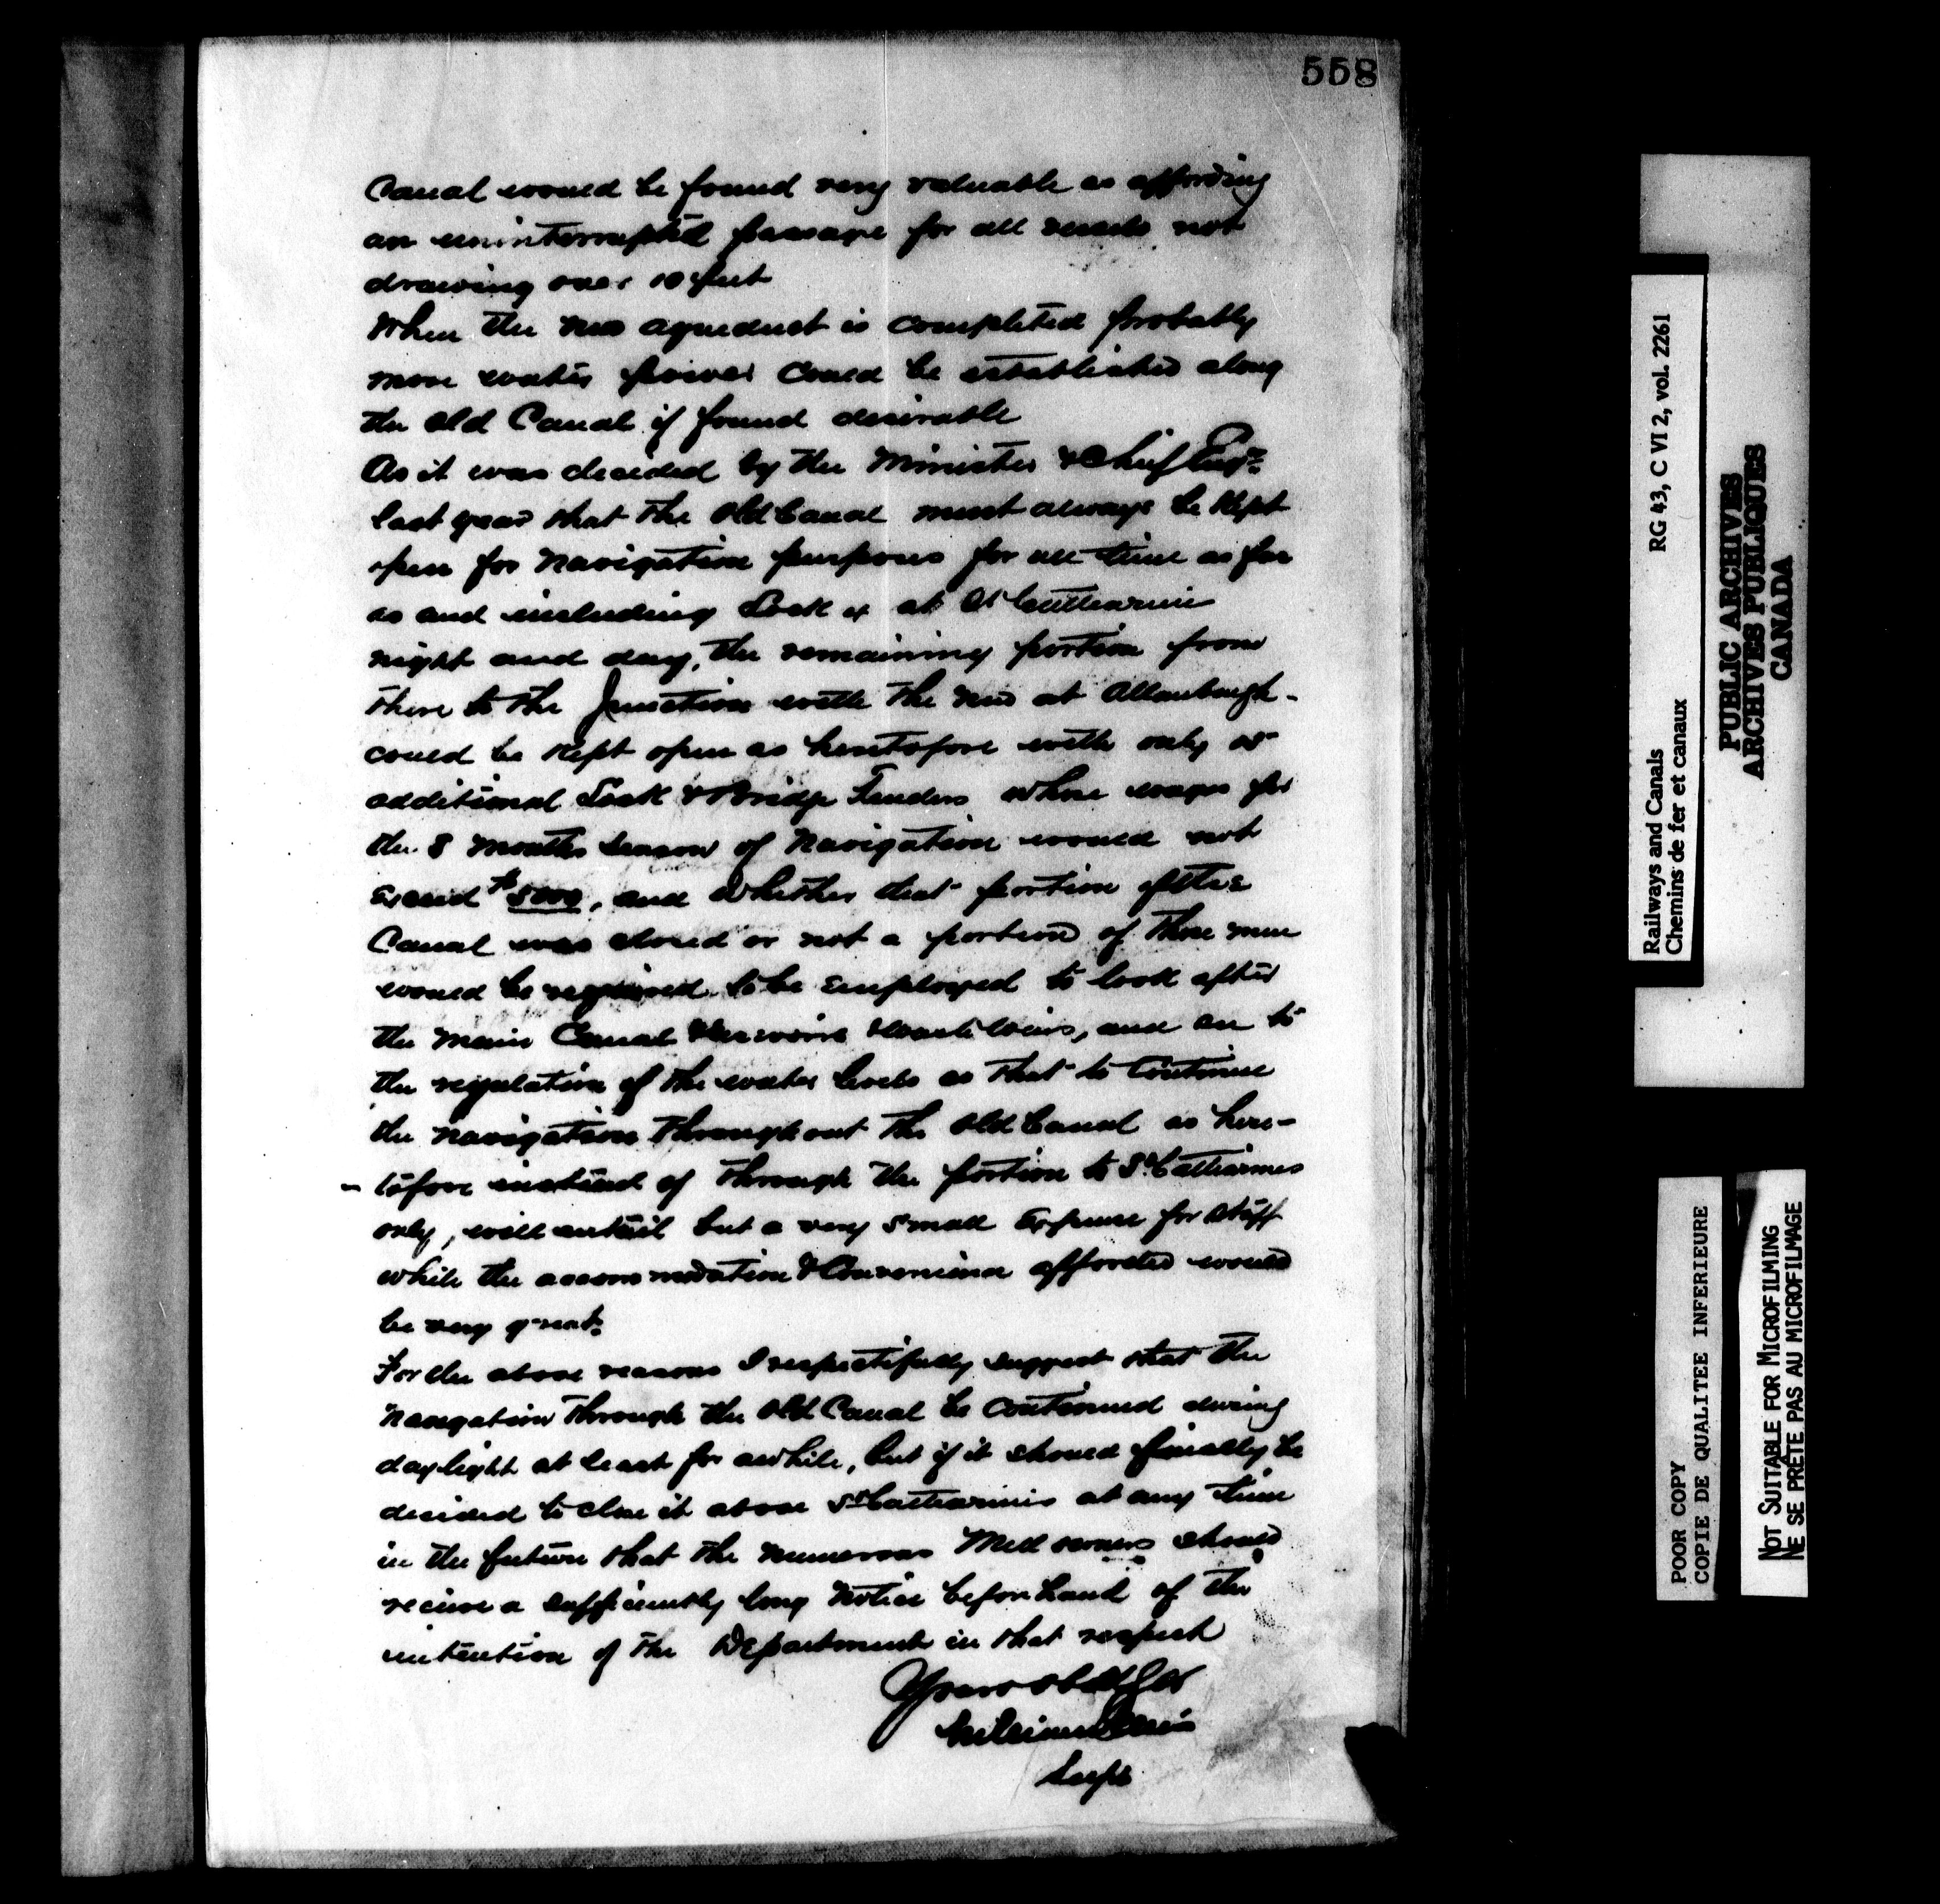 558
Canal would be found very valuable as affording
an uninterrupted passage for all vessels not
drawing over 10 feet
When the new aqueduct is completed probably
more water power could be established along
the Old Canal if found desirable
As it was decided by the Minister & Chief Engr.
last year that the Old Canal must always be kept
open for Navigation purposes for all time as far
as and including Lock 4 at St Catharines
night and day, the remaining portion from
there to the Junction with the new at Allanburgh-
could be kept open as heretofore with only
additional Lock & Bridge Tenders whose wages for
the 8 months season of Navigation would not
exceed $5000, and whether that portion of the
Canal was closed or not a portion of those men
would be required to be employed to look after
the main Canal Reservoirs & Waste Weirs, and to
the regulation of the water levels so that to continue
the navigation throughout the Old Canal as here-
- tofore instead of through the portion to St Catharines
only, will entail but a very small expense for staff
while the accommodation & Convenience afforded would
be very great.
For the above reasons I respectfully suggest that the
Navigation through the Old Canal be continued during
daylight at least for awhile, but if it should finally be
decided to close it above St Catharines at any time
in the future that the numerous Mill owners should
receive a sufficiently long notice beforehand of the
intention of the Department in that respect
Yours obt Ser
William Ellis
Supt
Railways and Canals RG 43, C VI 2, vol. 2261
Chemins de fer et canaux
PUBLIC ARCHIVES
ARCHIVES PUBLIQUES
CANADA
POOR COPY
COPIE DE QUALITEE INFERIEURE
NOT SUITABLE FOR MICROFILMING
NE SE PRÊTE PAS AU MICROFILMAGE